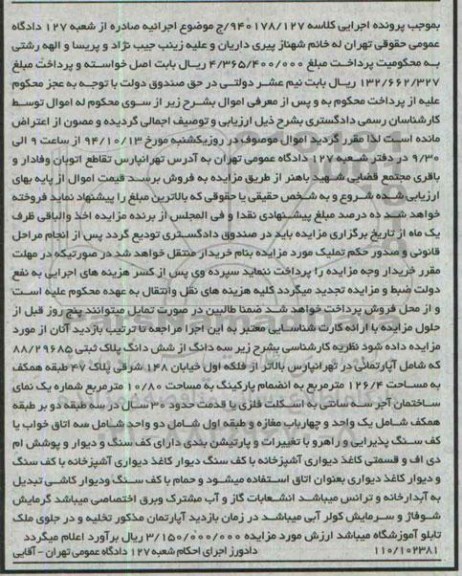 بموجب پرونده اجرایی کلاسه ۹۴۰۱۷۸/۱۲۷/ج موضوع اجرائیه صادره از شعبه ۱۲۷ دادگاه
عمومی حقوقی تهران له خانم شهناز پیری داریان و علیه زینب حبیب نژاد و پریسا و الهه رشتی
به محکومیت پرداخت مبلغ ۴/۳۶۵/۴۰۰/۰۰۰ ریال بابت اصل خواسته و پرداخت مبلغ
۱۳۲/۶۶۲/۳۲۷ ریال بابت نیم عشر دولتی در حق صندوق دولت با توجه به عجز محکوم
علیه از پرداخت محکوم به و پس از معرفی اموال بشرح زیر از سوی محکوم له اموال توسط
کارشناسان رسمی دادگستری بشرح ذیل ارزیابی و توصیف اجمالی گردیده و مصون از اعتراض
مانده است لذا مقرر گردید اموال موصوف در روز یکشنبه مورخ ۹۴/۱۰/۱۳ از ساعت ۹ الی
۹/۳۰ در دفتر شعبه ۱۲۷ دادگاه عمومی تهران به آدرس تهرانپارس تقاطع اتوبان وفادار و
باقری مجتمع قضایی شهید باهنر از طریق مزایده به فروش برسد قیمت اموال از پایه بهای
ارزیابی شده شروع و به شخص حقیقی یا حقوقی که بالاترین مبلغ را پیشنهاد نماید فروخته
خواهد شد ده درصد مبلغ پیشنهادی نقدا و فی المجلس از برنده مزایده اخذ والباقی ظرف
یک ماه از تاریخ برگزاری مزایده باید در صندوق دادگستری تودیع گردد پس از انجام مراحل
قانونی و صدور حکم تملیک مورد مزایده بنام خریدار منتقل خواهد شد در صورتیکه در مهلت
مقرر خریدار وجه مزایده را پرداخت ننماید سپرده وی پس از کسر هزینه های اجرایی به نفع
دولت ضبط و مزایده تجدید میگردد کلیه هزینه های نقل وانتقال به عهده محکوم علیه است
و از محل فروش پرداخت خواهد شد ضمنا طالبین در صورت تمایل میتوانند پنج روز قبل از
حلول مزایده با ارائه کارت شناسایی معتبر به این اجرا مراجعه تا ترتیب بازدید آنان از مورد
مزایده داده شود نظریه کارشناسی بشرح زیر سه دانگ از شش دانگ پلاک ثبتی ۸۸/۲۹۶۸۵
که شامل آپارتمانی در تهرانپارس بالاتر از فلکه اول خیابان ۱۴۸ شرقی پلاک ۴۷ طبقه همکف
به مساحت ۱۲۶/۴ مترمربع به انضمام پارکینگ به مساحت ۱۰/۸۰ مترمربع شماره یک نمای
ساختمان آجر سه سانتی به اسکلت فلزی با قدمت حدود ۳۰ سال در سه طبقه دو بر طبقه
همکف شامل یک واحد و چهارباب مغازه و طبقه اول شامل دو واحد شامل سه اتاق خواب با
کف سنگ پذیرایی و راهرو با تغییرات و پارتیشن بندی دارای کف سنگ و دیوار و پوشش ام
دی اف و قسمتی کاغذ دیواری آشپزخانه با کف سنگ دیوار کاغذ دیواری آشپزخانه با کف سنگ
و دیوار کاغذ دیواری بعنوان اتاق استفاده میشود و حمام با کف سنگ ودیوار کاشی تبدیل
به آبدارخانه و ترانس میباشد انشعابات گاز و آب مشترک وبرق اختصاصی میباشد گرمایش
شوفاژ و سرمایش کولر آبی میباشد در زمان بازدید آپارتمان مذکور تخلیه و در جلوی ملک
تابلو آموزشگاه میباشد ارزش مورد مزایده ۳/۱۵۰/۰۰۰/۰۰۰ ریال برآورد اعلام میگردد
۱۱۰/۱۰۲۳۸۱ دادورز اجرای احکام شعبه ۱۲۷ دادگاه عمومی تهران - آقایی